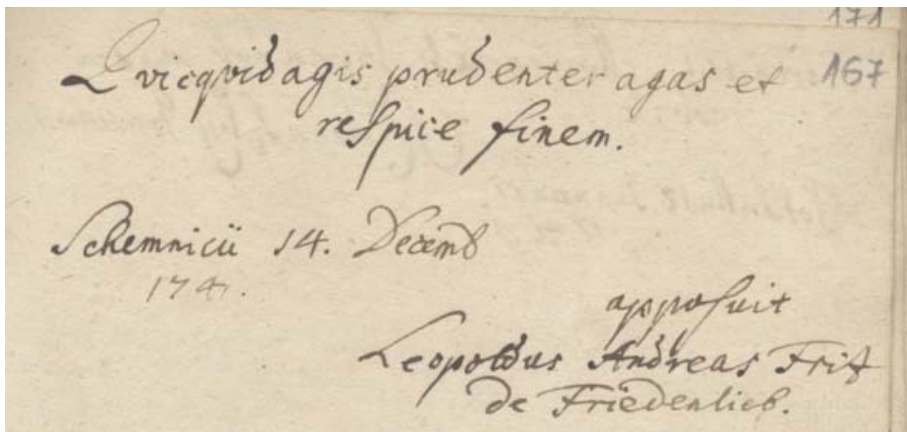 171
Qvicqvid agis prudenter agas et 167
respice finem.
Schemnicii 14. Decemb
1741.
apposuit
Leopoldus Andreas Frit
de Friedenlieb.